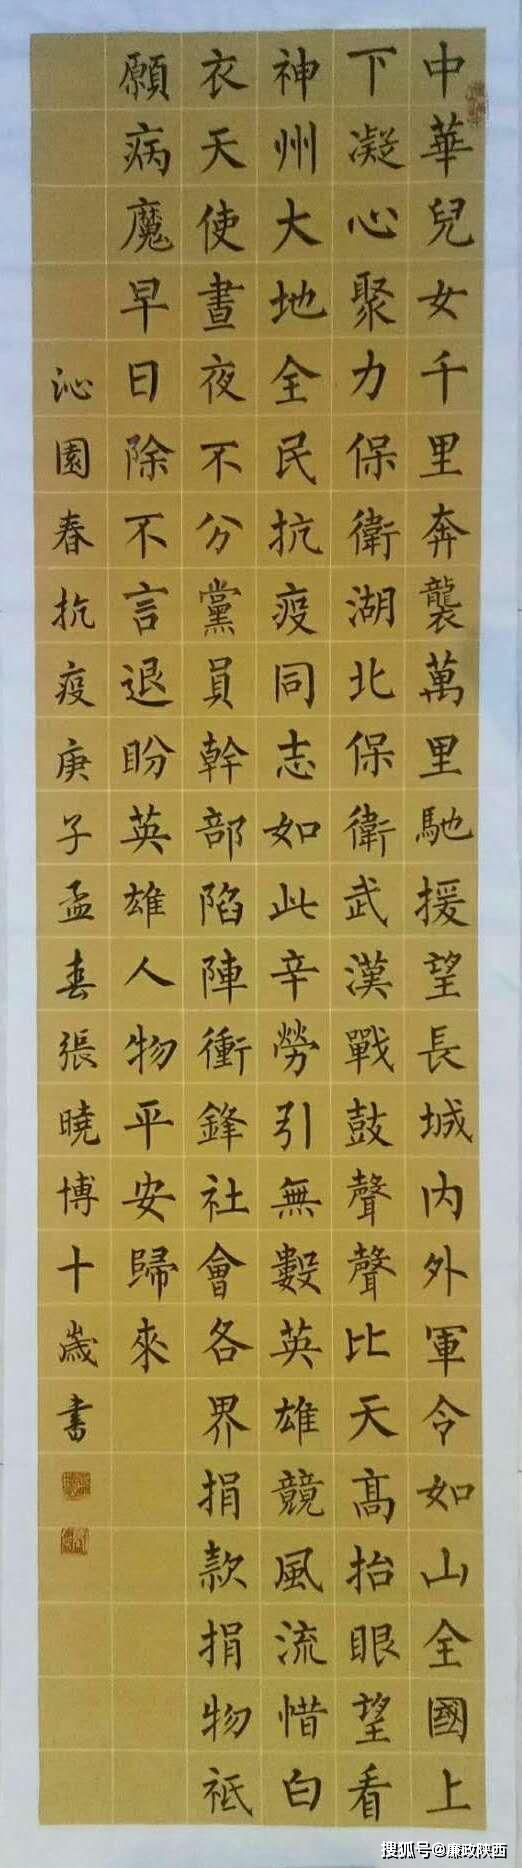 中華兒女千里奔襲萬里馳援望長城內外軍令如山全國上
下凝心聚力保衛湖北保衛武漢戰鼓聲聲比天高抬眼望看
神州大地全民抗疫同志如此辛勞引無數英雄競風流惜白
衣天使晝夜不分黨員幹部陷陣衝鋒社會各界捐款捐物祗
願病魔早日除不言退盼英雄人物平安歸來
沁園春抗疫庚子孟春張曉博十歲書
搜狐号@廉政陕西